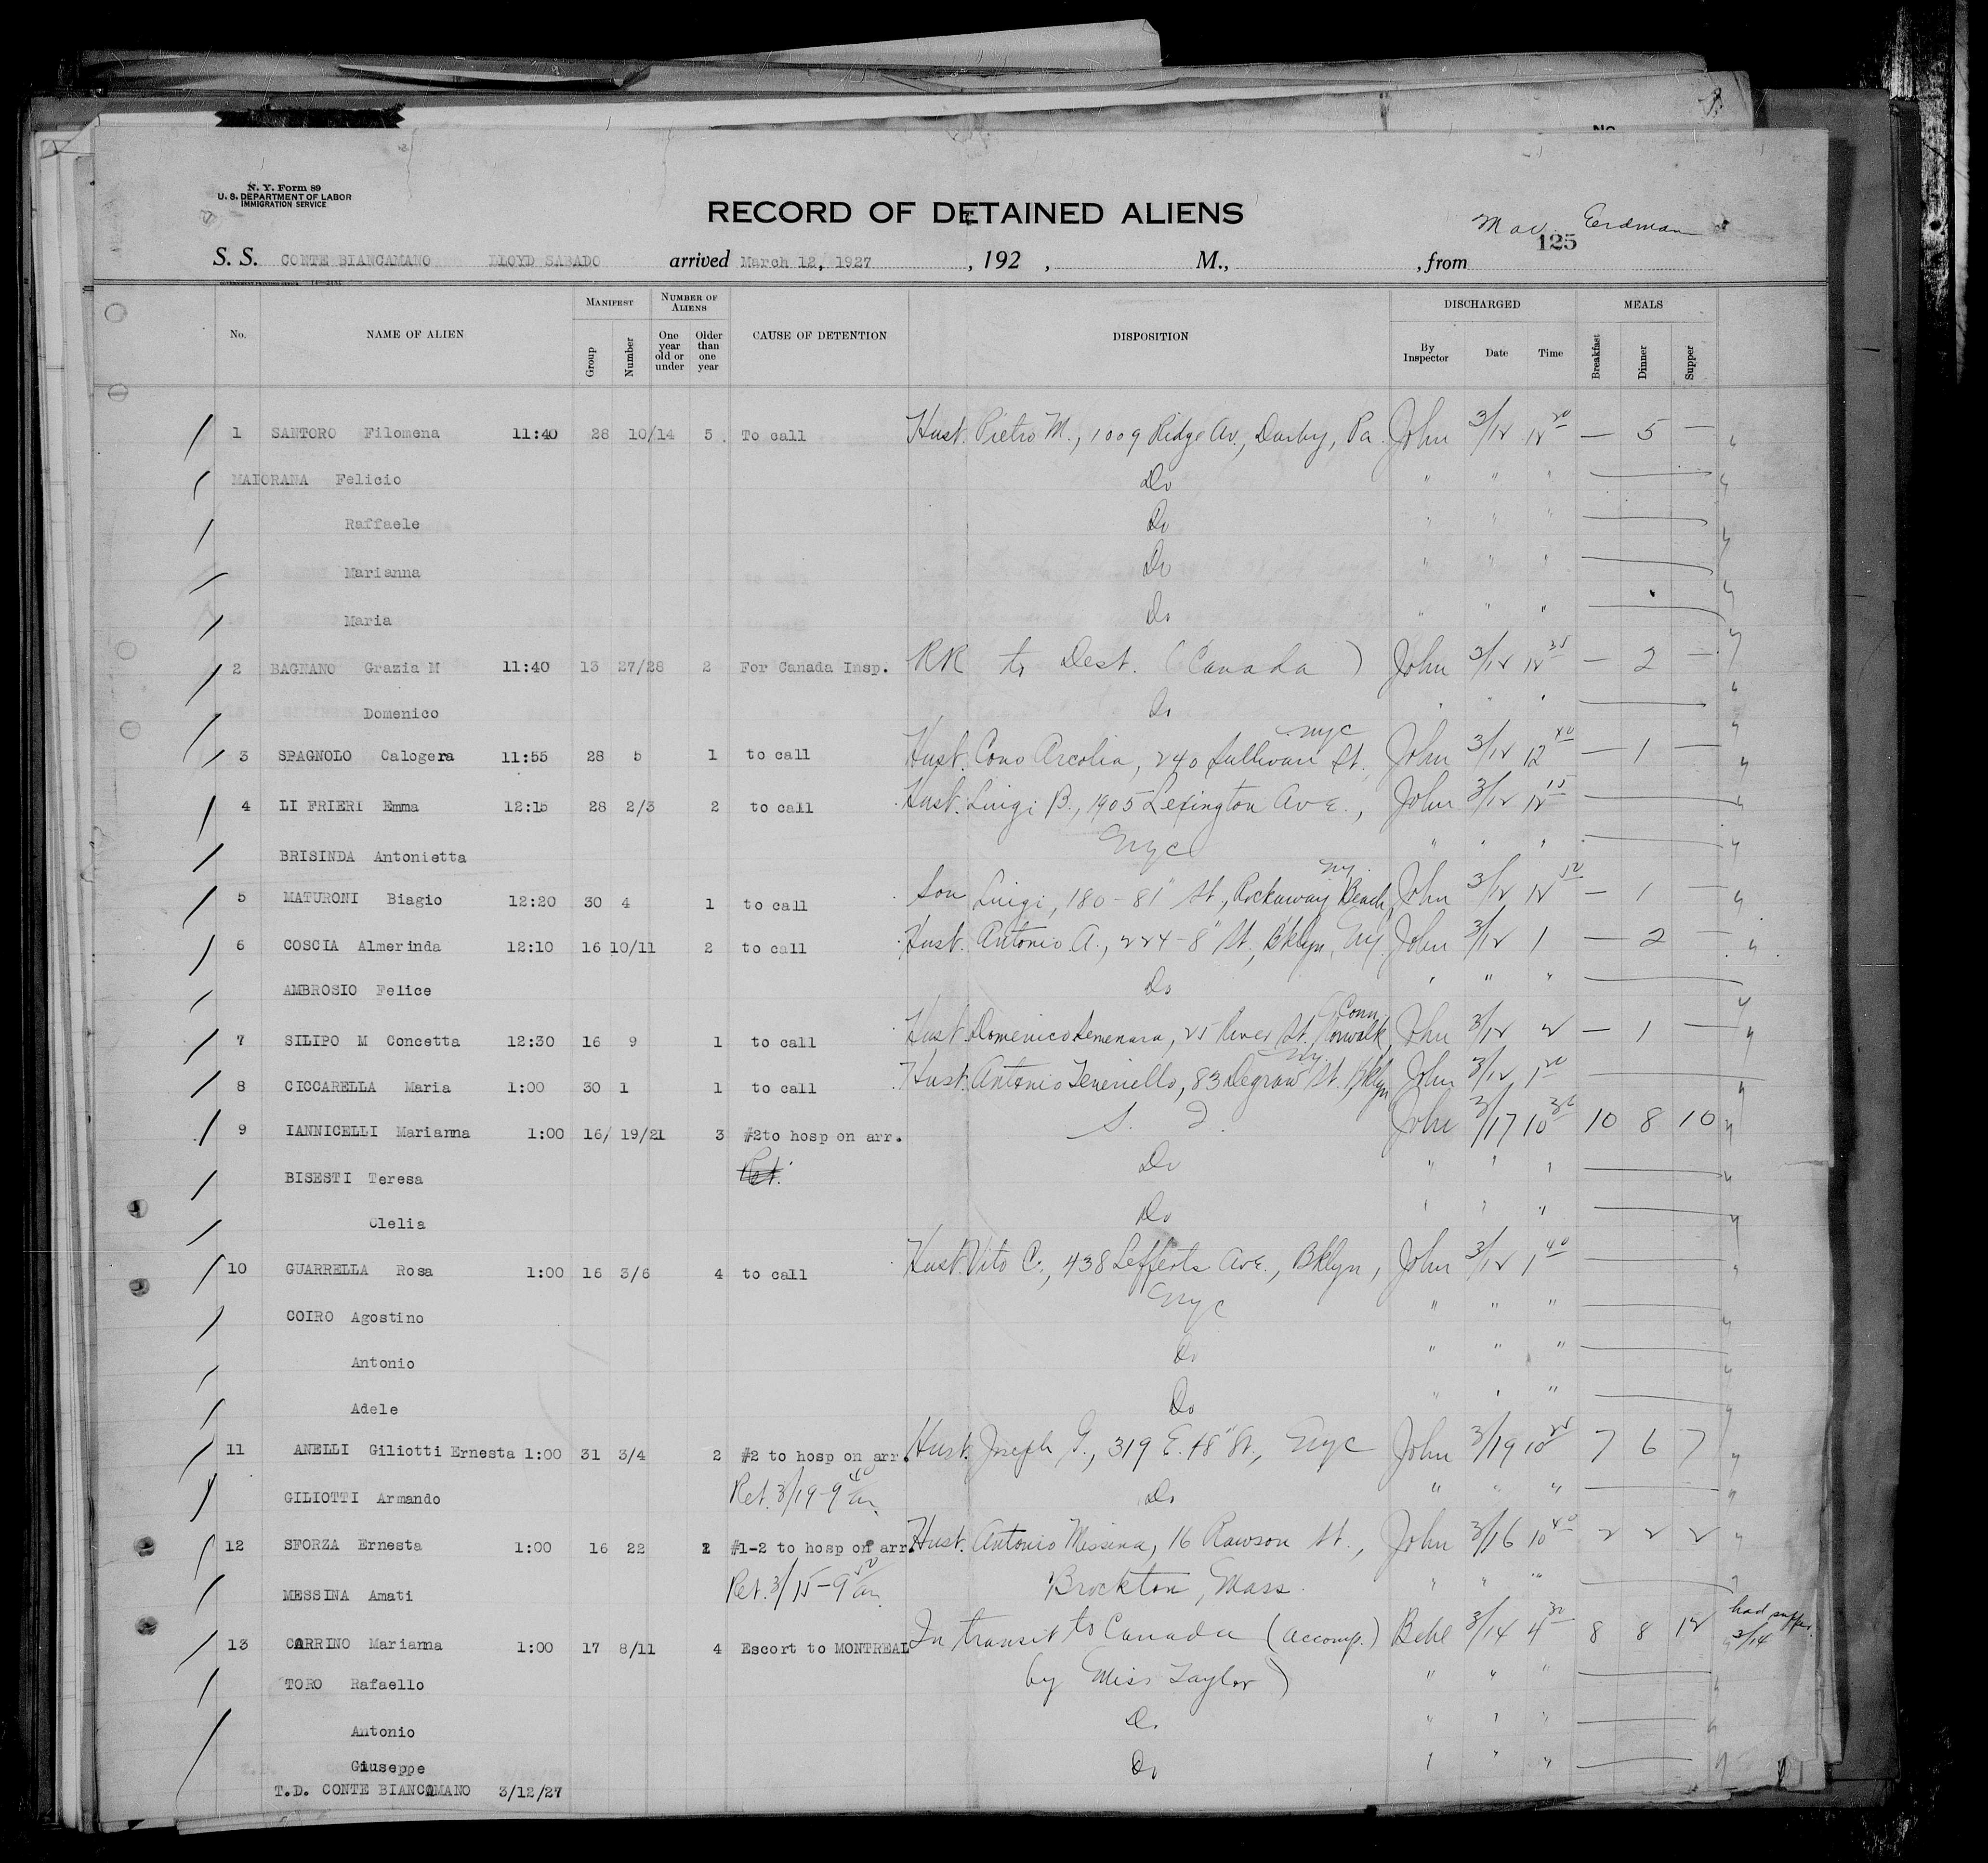 N. Y. Form 89
U. S. DEPARTMENT OF LABOR
IMMIGRATION SERVICE
RECORD OF DETAINED ALIENS
Erdman
125
S. S. CONTE BIANCAMANO LLOYD SABADO arrived March 12, 1927 , 192 , M., , from
No. NAME OF ALIEN MANIFEST Group Number NUMBER OF ALIENS One year old or under Older than one year CAUSE OF DETENTION DISPOSITION DISCHARGED By Inspector Date Time MEALS Breakfast Dinner Supper
1 SANTORO Filomena 11:40 28 10/14 5 To call Hust. Pietro M., 1009 Ridge Av., Darby, Pa. John 3/12 12 20 — 5 —
MAIORANA Felicio Do " " "
Raffaele Do " " "
Marianna Do " " "
Maria Do " " "
2 BAGNANO Grazia M 11:40 13 27/28 2 For Canada Insp. RR to Dest. (Canada) John 3/12 12 35 — 2 —
Domenico Do " " "
3 SPAGNOLO Calogera 11:55 28 5 1 to call Hust. Cono Arcolia, 240 Sullivan St. NYC John 3/12 12 40 — 1 —
4 LI FRIERI Emma 12:15 28 2/3 2 to call Hust. Luigi B., 1905 Lexington Ave., John 3/12 12 15
BRISINDA Antonietta NYC " " "
5 MATURONI Biagio 12:20 30 4 1 to call Son Luigi, 180-81" St., Rockaway Beach, NY. John 3/12 12 50 — 1 —
6 COSCIA Almerinda 12:10 16 10/11 2 to call Hust. Antonio A., 224-8" St., Bklyn, NY. John 3/12 1 — 2 —
AMBROSIO Felice Do " " "
7 SILIPO M Concetta 12:30 16 9 1 to call Hust. Domenico 25 River St., Norwalk, Conn. John 3/12 2 — 1 —
8 CICCARELLA Maria 1:00 30 1 1 to call Hust. Antonio 83 Degraw St. Bklyn NY. John 3/12 1 20
9 IANNICELLI Marianna 1:00 16/ 19/21 3 #2to hosp on arr. S. I. John 3/17 10 30 10 8 10
BISESTI Teresa Ret. Do " " "
Clelia Do " " "
10 GUARRELLA Rosa 1:00 16 3/6 4 to call Hust. Vito C., 438 Lefferts Ave., Bklyn, John 3/12 1 40
COIRO Agostino NYC " " "
Antonio Do " " "
Adele Do " " "
11 ANELLI Giliotti Ernesta 1:00 31 3/4 2 #2 to hosp on arr. Hust. Joseph G., 319 E. 48" St., NYC John 3/19 10 25 7 6 7
GILIOTTI Armando Ret. 3/19-9 40 am. Do " " "
12 SFORZA Ernesta 1:00 16 22 1 #1-2 to hosp on arr. Hust. Antonio Messina, 16 Rawson St., John 3/16 10 40 2 2 2
MESSINA Amati Ret. 3/15-9 50 am. Brockton, Mass. " " "
13 CARRINO Marianna 1:00 17 8/11 4 Escort to MONTREAL In transit to Canada (accomp.) Behl 3/14 4 30 8 8 12 had supper 3/14
TORO Rafaello by Miss Taylor) " " "
Antonio Do " " "
Giuseppe Do " " "
T.D. CONTE BIANCAMANO 3/12/27